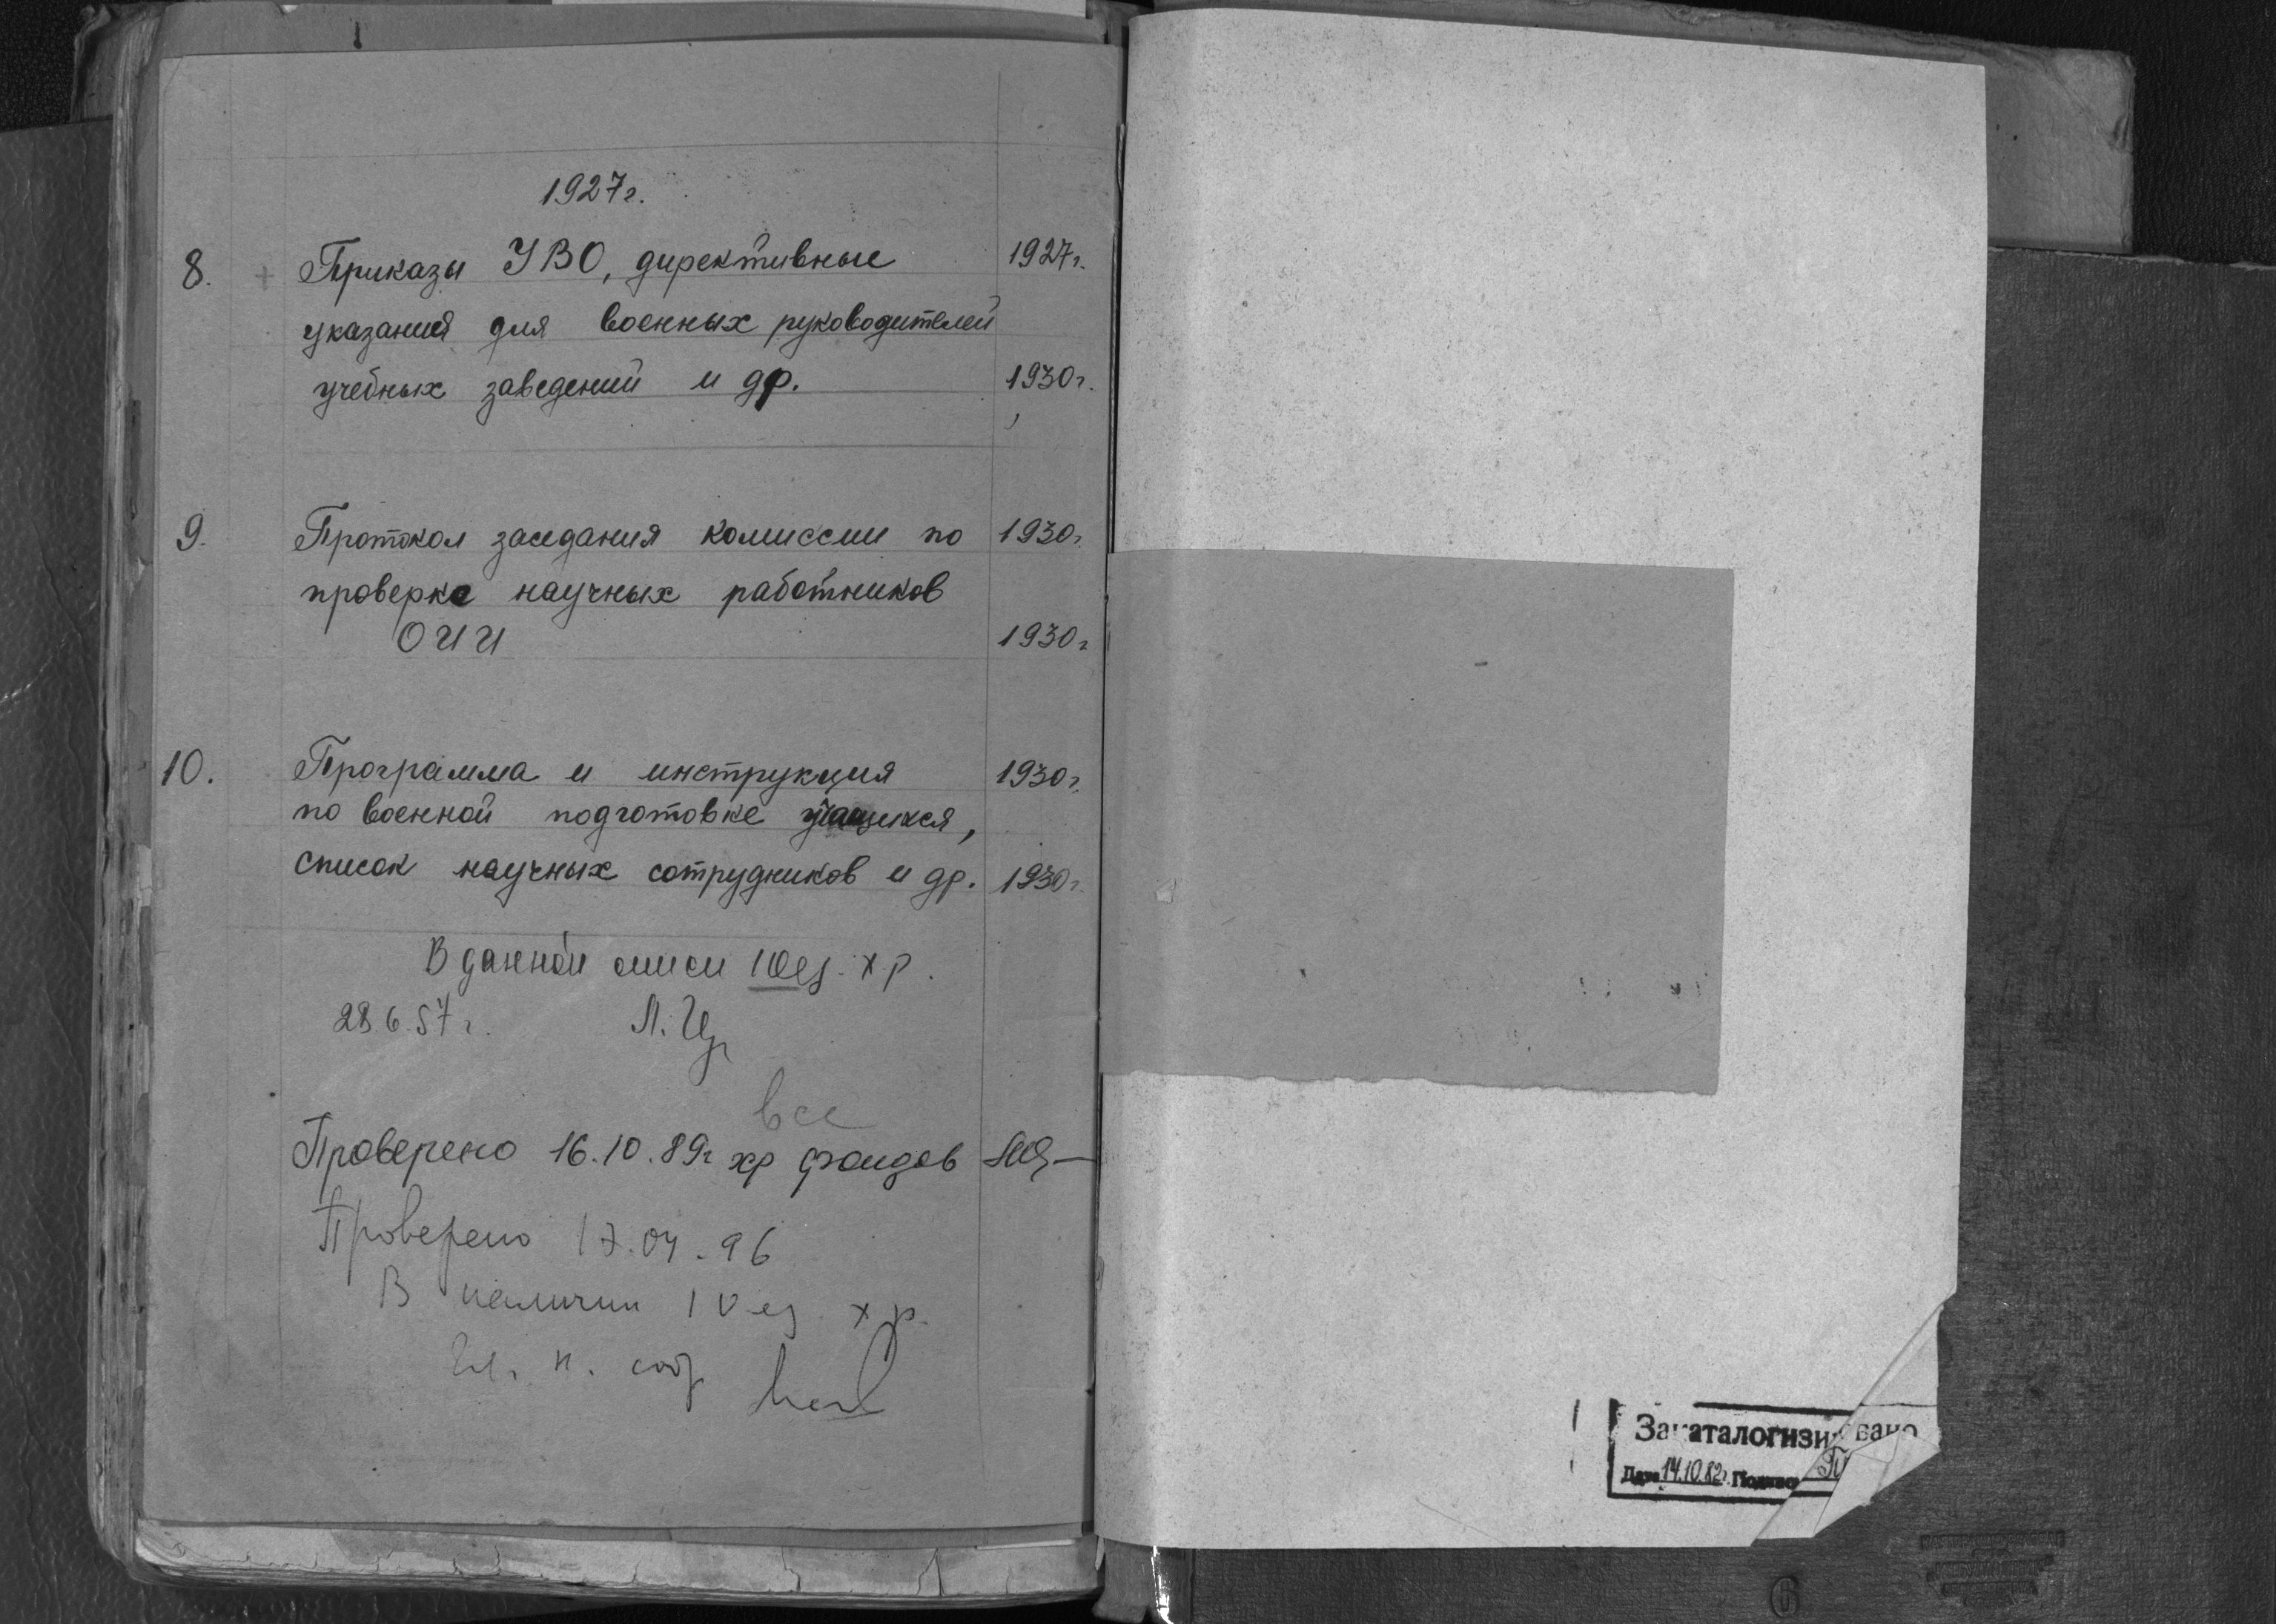 1927г.
8. + Приказы УВО, директивные 1927г.
указания для военных руководителей
учебных заведений и др. 1930г.
9. Протокол заседания комиссии по 1930г.
проверке научных работников
ОИИ 1930г
10. Программа и инструкция 1930г.
по военной подготовке учащихся,
список научных сотрудников и др. 1930г.
В данной описи 10 ед. хр.
28.6.57г.
все
Проверено 16.10.89г хр фондов
Проверено 17.04.96
В наличии 10 ед хр.
Закаталогизировано
Дата 14.10.82г. Подпись